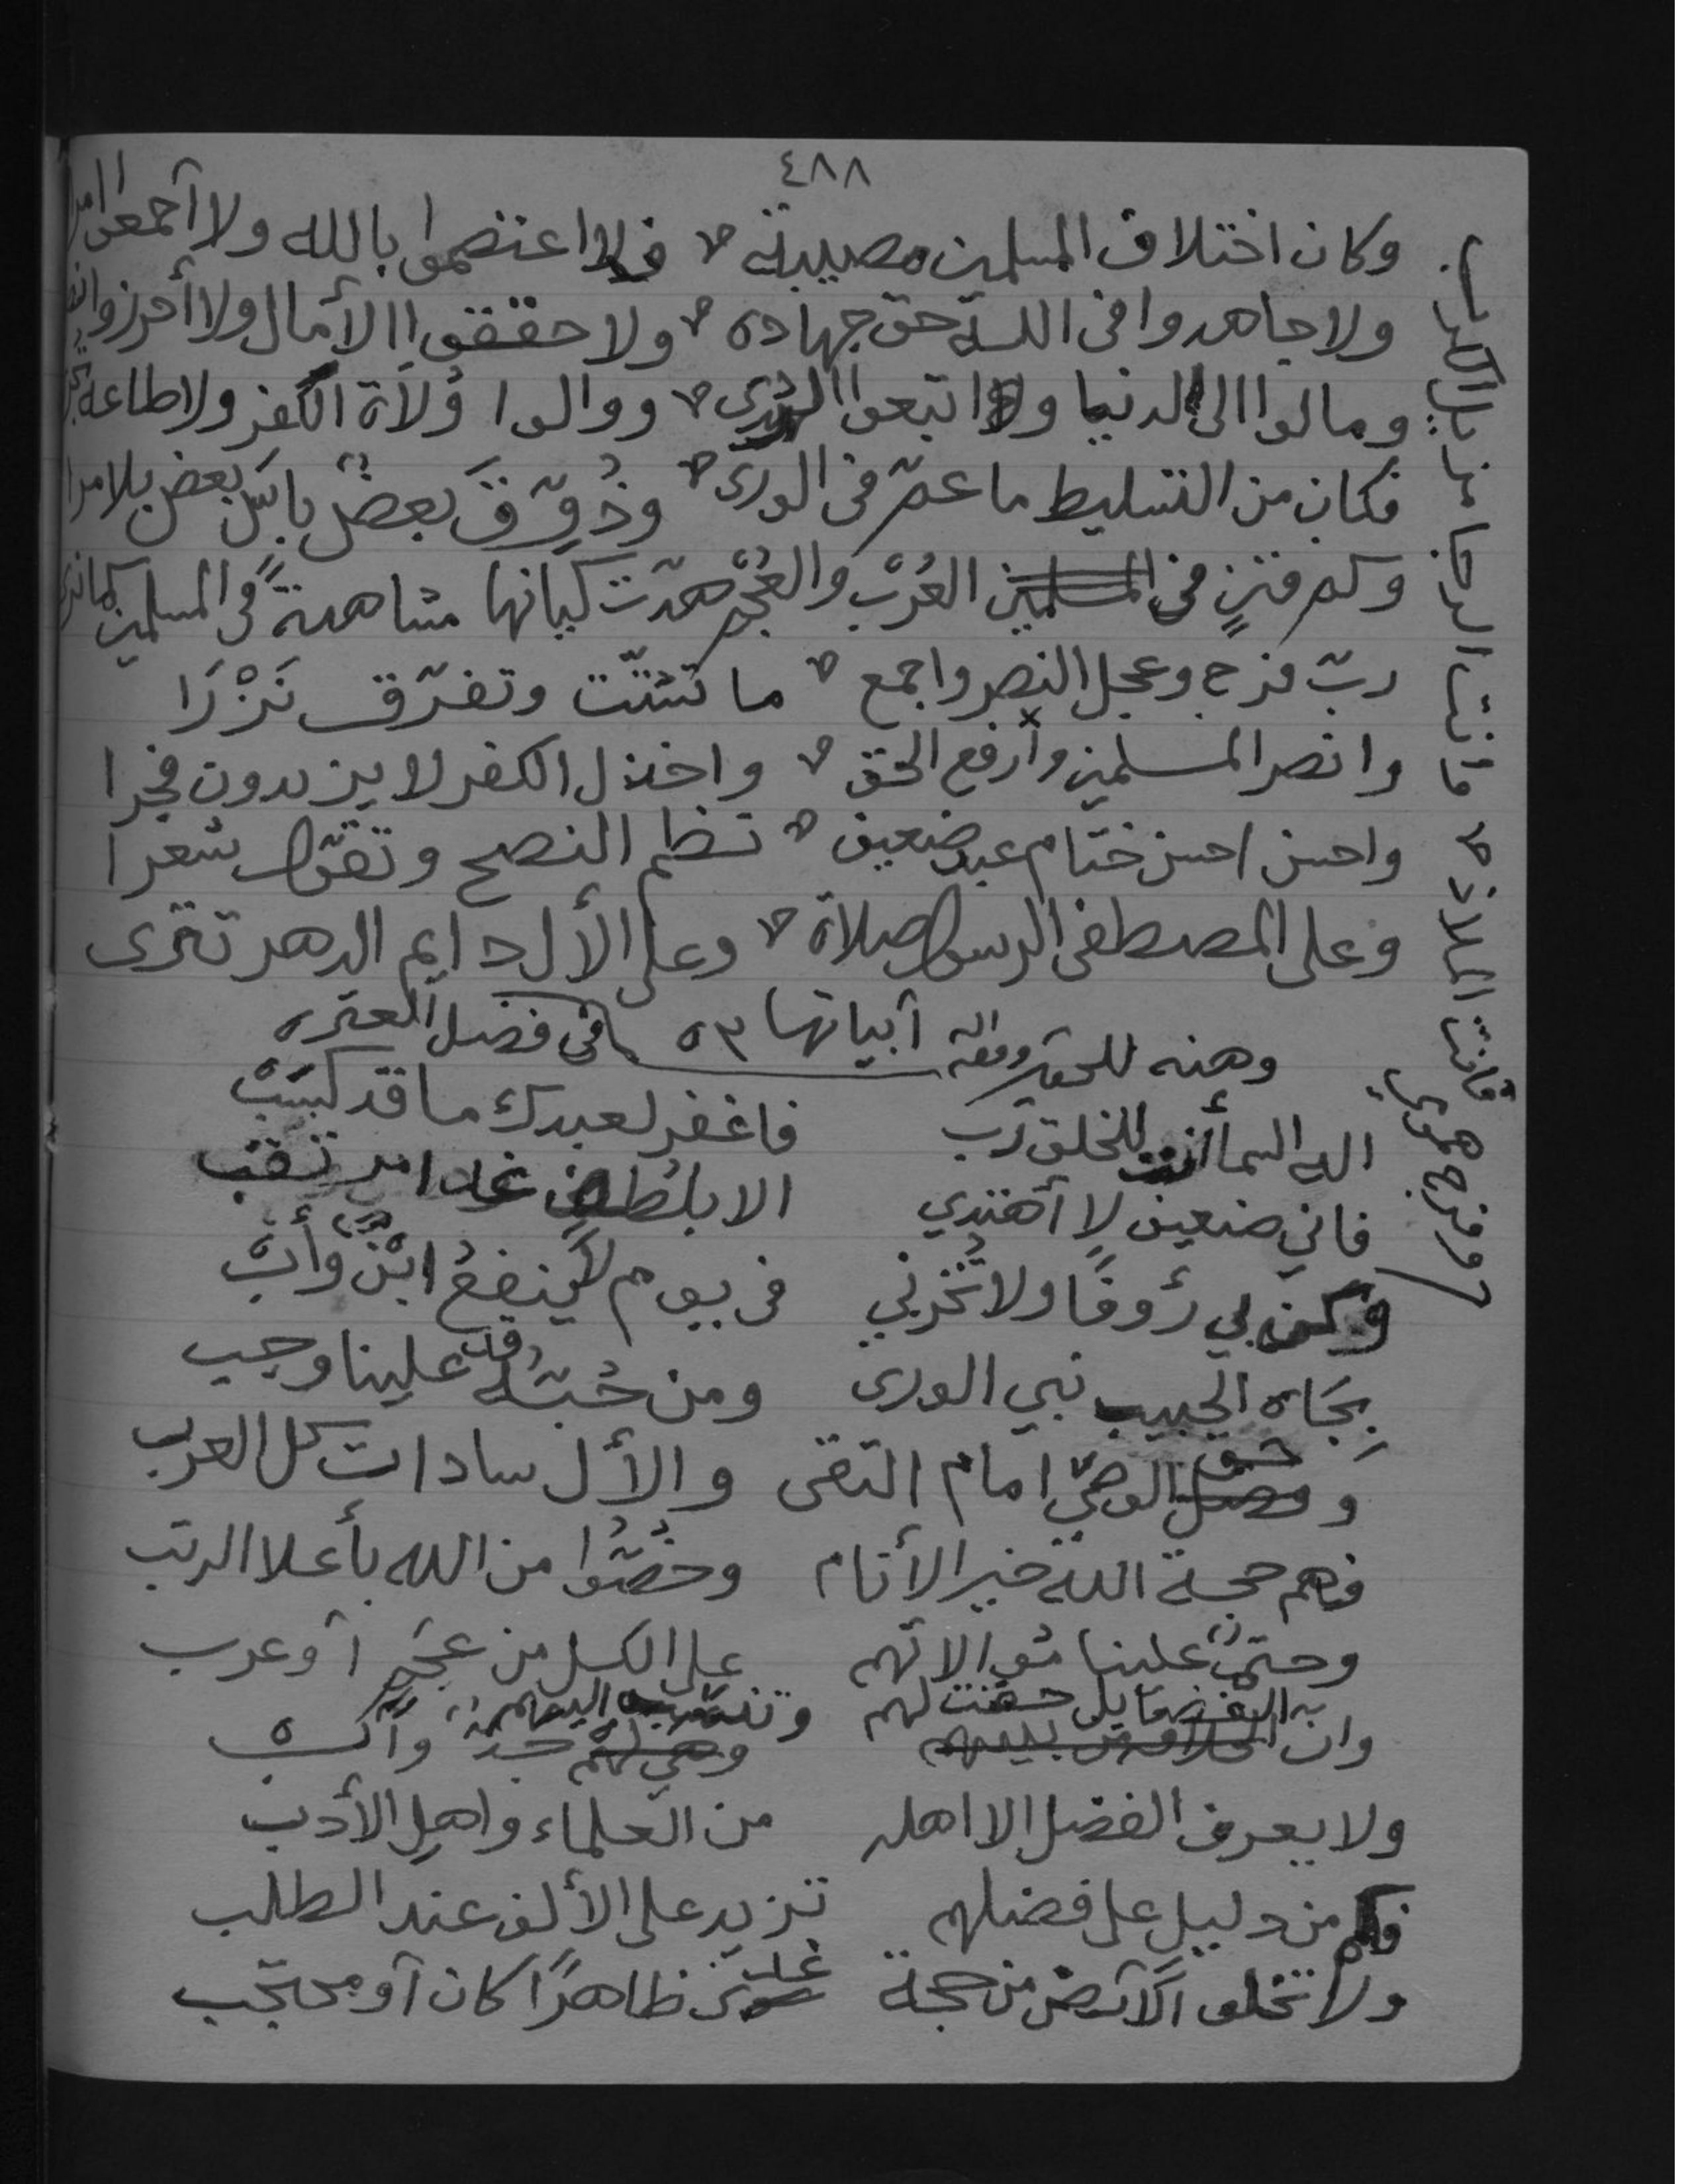 ٤٨٨
وكان اختلاف المسلمين مصيبة فلا اعتصموا بالله ولا أجمعوا
ولا جاهدوا في الله حق جهاده ولا حققوا الأمال ولا أحرزوا
ومالوا الى الدنيا ولا اتبعوا الهدى ووالوا وُلاَة الكفر ولا طاعة
فكان من التسليط ما عمّ في الورى وذُوِّقَ بعضٌ بأسَ بعض بلا مرا
وكم فتنٍ في العُرْب والعُجْم هدّت كيانها مشاهدةً في المسلمين كما ترى
ربّ فرج وعجل النصر واجمع ما تشتّت وتفرّق نَزْرَا
وانصر المسلمين وارفع الحق واخذل الكفر لا يزيدون فجرا
واحسن احسن ختام عبد ضعيف نظم النصح وتقوّل شعرا
وعلى المصطفى الرسول صلاة وعلى الأل دايم الدهر تترى
وهذه للحقير وفقه الله أبياتها ٥٣ في فضل العتره
اله السما أنت للخلق رَب فاغفر لعبدك ما قد كسَبْ
فاني ضعيف لا أهتدي الا بلطف غدا مرتقب
وكن بي رؤوفًا ولا تُخزني في يوم لا ينفعُ ابنٌ وأبْ
بِجَاه الحبيب نبي الورى ومن حُبّهُ قد علينا وجب
وحق الوصيّ امام التقى والأل سادات كل العرب
فهم حجة الله خير الأنام وخُصّوا من الله بأعلا الرتب
وحتمٌ علينا موالاتهم على الكل من عجَمٍ أو عرب
وان الفضايل حقت لهم
ولا يعرف الفضل الا اهله من العلماء واهل الأدب
فكم من دليل على فضلهم تزيد على الألف عند الطلب
ولا تخلو الأرض من حجة غدى ظاهرًا كان أو محتجب
فأنت الملاذ فأنت الرجا من باب
وفرج همومي